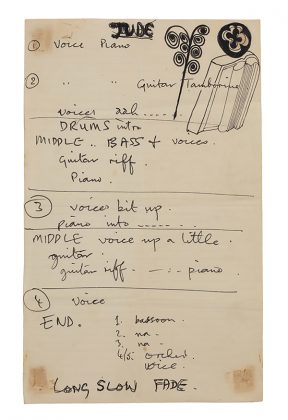 JUDE
① Voice Piano
② " " Guitar Tambourine
voices aah ......
DRUMS intro
MIDDLE .. BASS + voices.
Guitar riff.
Piano.
③ voices bit up.
piano into ......
MIDDLE voice up a little.
guitar.
guitar riff. —:— piano.
④ Voice
END. 1. bassoon.
2. na -
3. na -
4/5. orches.
voice.
LONG SLOW FADE.